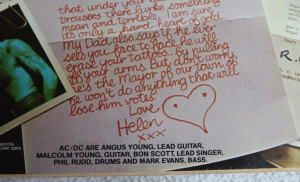 that under your
trousers there lurks something
mean and terrible, I am sure
its only a hand heart of gold.
My Dad also says if he ever
sees you face to face he will
erase your tattoos by pulling
off your arms. But don't worry,
he's the Mayor of our town so
he won't do anything that will
lose him votes.
Love
Helen
xxx
R.
AC/DC ARE ANGUS YOUNG, LEAD GUITAR,
MALCOLM YOUNG, GUITAR, BON SCOTT, LEAD SINGER,
PHIL RUDD, DRUMS AND MARK EVANS, BASS.